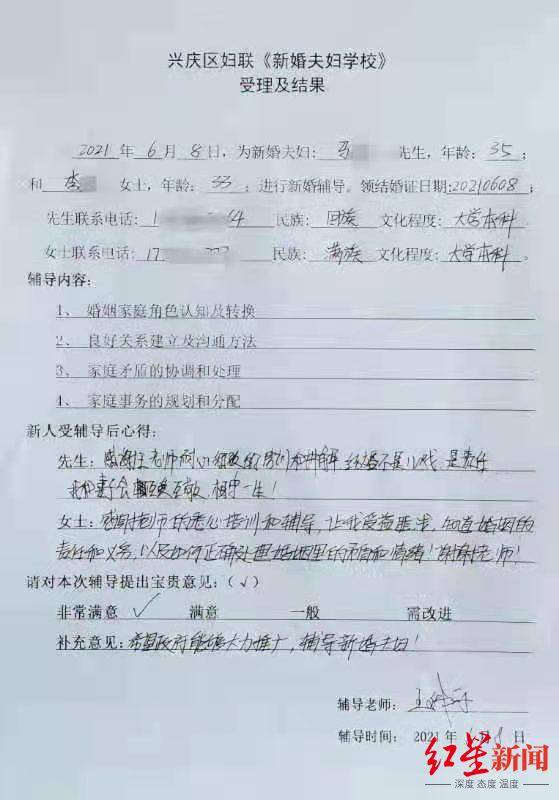 兴庆区妇联《新婚夫妇学校》
受理及结果
2021 年 6 月 8 日，为新婚夫妇：马 先生，年龄：35；
和 李 女士，年龄：33；进行新婚辅导。领结婚证日期：20210608；
先生联系电话：1 4 民族：回族 文化程度：大学本科
女士联系电话：17 民族：满族 文化程度：大学本科。
辅导内容：
1、 婚姻家庭角色认知及转换
2、 良好关系建立及沟通方法
3、 家庭矛盾的协调和处理
4、 家庭事务的规划和分配
新人受辅导后心得：
先生：感谢 老师 和讲解 结婚不是儿戏，是责任
我和妻子会 互敬，相守一生！
女士：感谢老师的悉心培训和辅导，让我受益匪浅，知道婚姻的
责任和义务，以及如何正确处理婚姻里的矛盾和情绪！谢谢老师！
请对本次辅导提出宝贵意见：（√）
非常满意 √ 满意 一般 需改进
补充意见：希望政府能够大力推广，辅导新婚夫妇！
辅导老师：王
辅导时间： 2021 年 6 月 8 日
红星新闻
深度 态度 温度